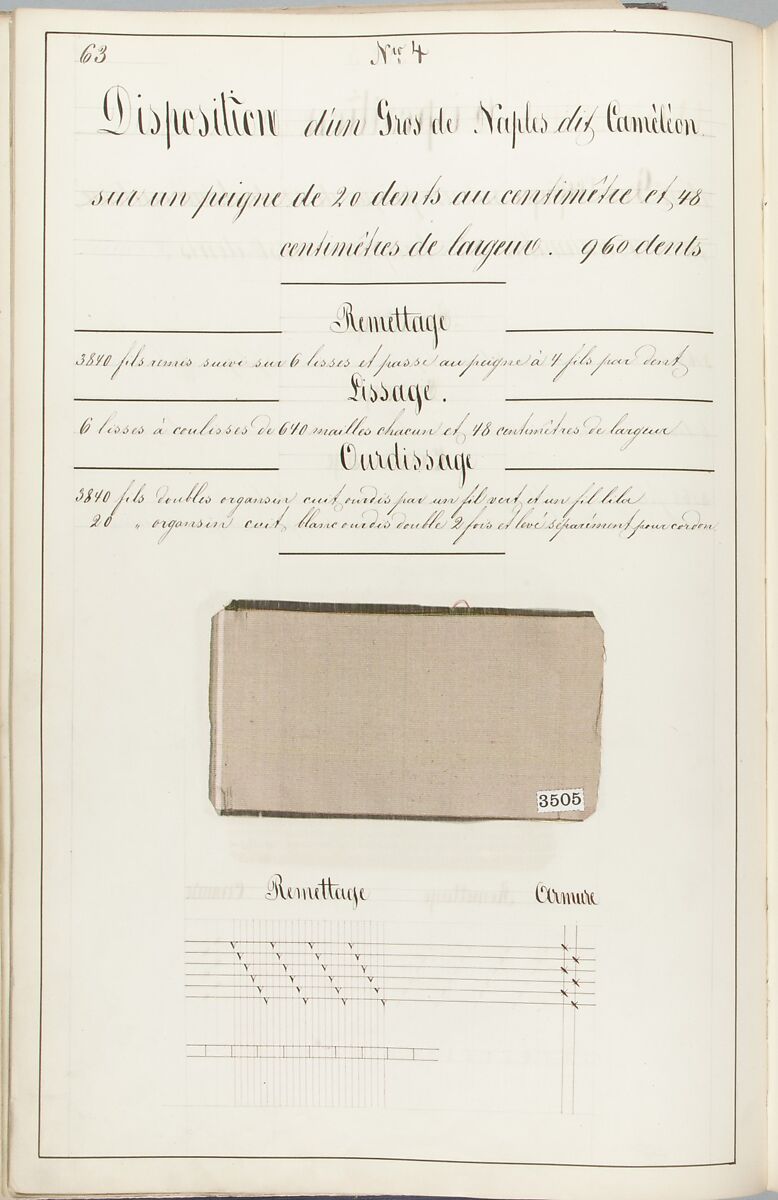 63
Nro 4
Disposition d'un Gros de Naples dit Caméléon
sur un peigne de 20 dents au centimètre et 48
centimètres de largeur. 960 dents
Remettage
3840 fils remis suivi sur 6 lisses et passé au peigne à 4 fils par dent
Lissage.
6 lisses à coulisses de 640 mailles chacun et 48 centimètres de largeur
Ourdissage
3840 fils doubles organsin cuit ourdis par un fil vert et un fil lila
20 " organsin cuit blanc ourdis double 2 fois et levé séparément pour cordon
3505
Remettage
Armure